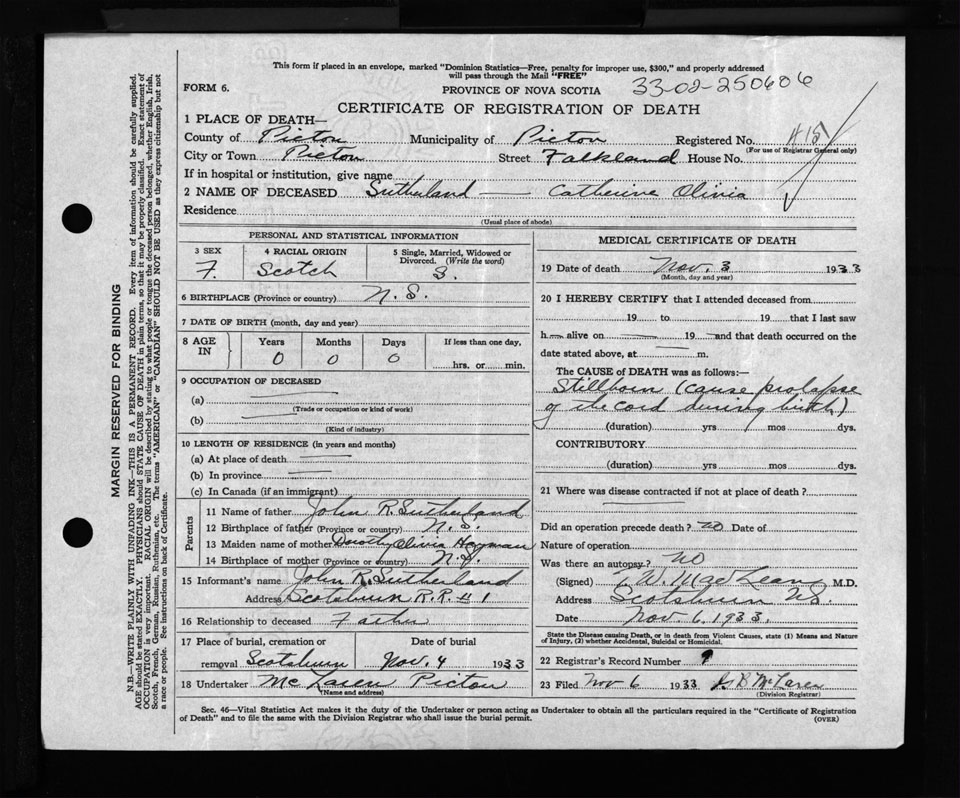 This form if placed in an envelope, marked "Dominion Statistics—Free, penalty for improper use, $300," and properly addressed
will pass through the Mail "FREE"
FORM 6.
PROVINCE OF NOVA SCOTIA
33-02-250606
CERTIFICATE OF REGISTRATION OF DEATH
1 PLACE OF DEATH—
County of Pictou Municipality of Pictou Registered No.
(For use of Registrar General only)
City or Town Pictou Street Falkland House No.
If in hospital or institution, give name
2 NAME OF DECEASED Sutherland — Catherine Olivia
Residence
(Usual place of abode)
PERSONAL AND STATISTICAL INFORMATION
3 SEX 4 RACIAL ORIGIN 5 Single, Married, Widowed or Divorced. (Write the word)
F. Scotch S.
6 BIRTHPLACE (Province or country) N.S.
7 DATE OF BIRTH (month, day and year)
8 AGE IN Years Months Days If less than one day,
0 0 0 hrs. or min.
9 OCCUPATION OF DECEASED
(a)
(Trade or occupation or kind of work)
(b)
(Kind of industry)
10 LENGTH OF RESIDENCE (in years and months)
(a) At place of death
(b) In province
(c) In Canada (if an immigrant)
Parents
11 Name of father John R. Sutherland
12 Birthplace of father (Province or country) N.S.
13 Maiden name of mother Dorothy Olivia
14 Birthplace of mother (Province or country) N.S.
15 Informant's name John R. Sutherland
Address Scotsburn R.R. #1
16 Relationship to deceased Father
17 Place of burial, cremation or removal Scotsburn Date of burial Nov. 4 1933
18 Undertaker McLaren Pictou
(Name and address)
MEDICAL CERTIFICATE OF DEATH
19 Date of death Nov. 3 1933
(Month, day and year)
20 I HEREBY CERTIFY that I attended deceased from
19 to 19 that I last saw
h— alive on 19 and that death occurred on the
date stated above, at m.
The CAUSE of DEATH was as follows:—
Stillborn (cause prolapse
of the cord during birth)
(duration) yrs mos dys.
CONTRIBUTORY
(duration) yrs mos dys.
21 Where was disease contracted if not at place of death?
Did an operation precede death? NO Date of
Nature of operation
Was there an autopsy? NO
(Signed) T. W. MacLean M.D.
Address Scotsburn NS.
Date Nov. 6. 1933.
State the Disease causing Death, or in death from Violent Causes, state (1) Means and Nature
of Injury, (2) whether Accidental, Suicidal or Homicidal.
22 Registrar's Record Number 9
23 Filed Nov 6 1933 McLaren
(Division Registrar)
Sec. 46—Vital Statistics Act makes it the duty of the Undertaker or person acting as Undertaker to obtain all the particulars required in the "Certificate of Registration
of Death" and to file the same with the Division Registrar who shall issue the burial permit.
(OVER)
MARGIN RESERVED FOR BINDING
N.B.—WRITE PLAINLY WITH UNFADING INK—THIS IS A PERMANENT RECORD. Every item of information should be carefully supplied.
AGE should be stated EXACTLY. PHYSICIANS should STATE CAUSE OF DEATH in plain terms, so that it may be properly classified. Exact statement of
OCCUPATION is very important. RACIAL ORIGIN will be described by stating to what people or tongue the deceased person belonged, whether English, Irish,
Scotch, French, German, Russian, Ruthenian, etc. The terms "AMERICAN" or "CANADIAN" SHOULD NOT BE USED as they express citizenship but not
a race or people. See instructions on back of Certificate.